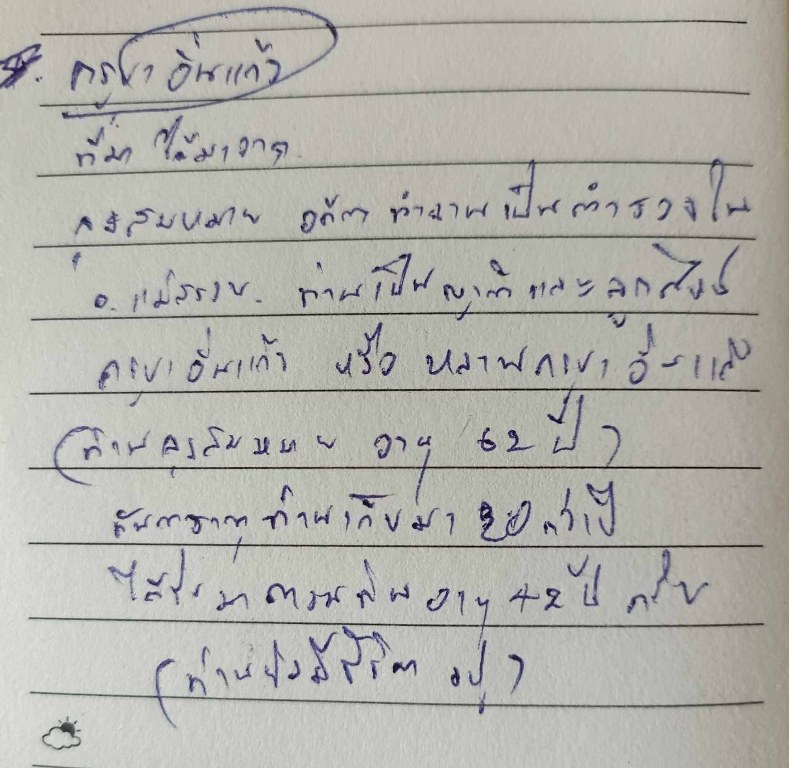 ครูบาอิ่นแก้ว
ที่มา ได้มาจาก
ลุงสมหมาย อดีต ทำงานเป็นตำรวจใน
อ.แม่สรวย. ท่านเป็นญาติและลูกศิษย์
ครูบาอิ่นแก้ว หรือ หลานครูบาอิ่นแก้ว
(ท่านลุงสมหมาย อายุ 62 ปี)
ท่านเก็บมา 20 กว่าปี
ได้รับมาตอนท่าน อายุ 42 ปี ครับ
(ท่านยังมีชีวิต อยู่)